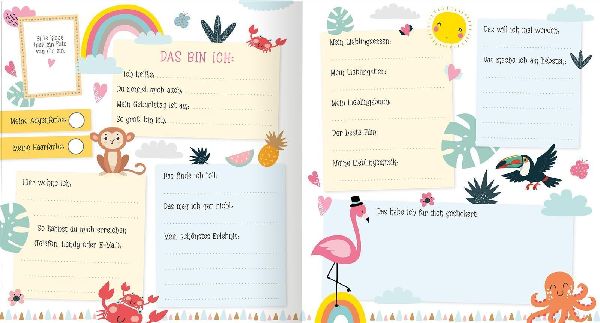 Bitte klebe
hier ein Foto
von dir ein.
DAS BIN ICH:
Ich heiße:
Du nennst mich auch:
Mein Geburtstag ist am:
So groß bin ich:
Meine Augenfarbe:
Meine Haarfarbe:
Hier wohne ich:
So kannst du mich erreichen
(Telefon, Handy oder E-Mail):
Das finde ich toll:
Das mag ich gar nicht:
Mein schönstes Erlebnis:
Mein Lieblingsessen:
Mein Lieblingstier:
Mein Lieblingsbuch:
Der beste Film:
Meine Lieblingsmusik:
Das will ich mal werden:
Das spiele ich am liebsten:
Das habe ich für dich gezeichnet: